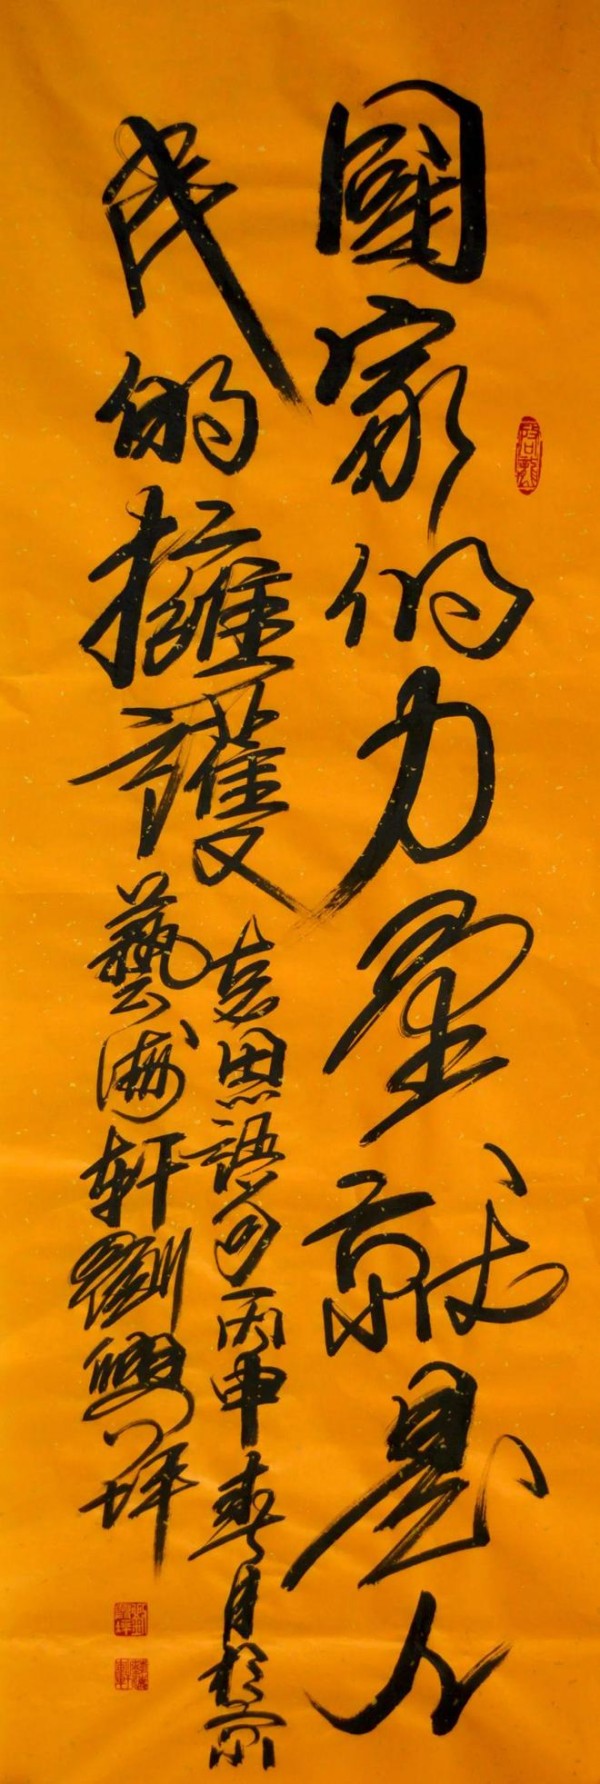 國家的力量就是人
民的擁護
克思語句丙申春月於京
藝海軒劉興坪